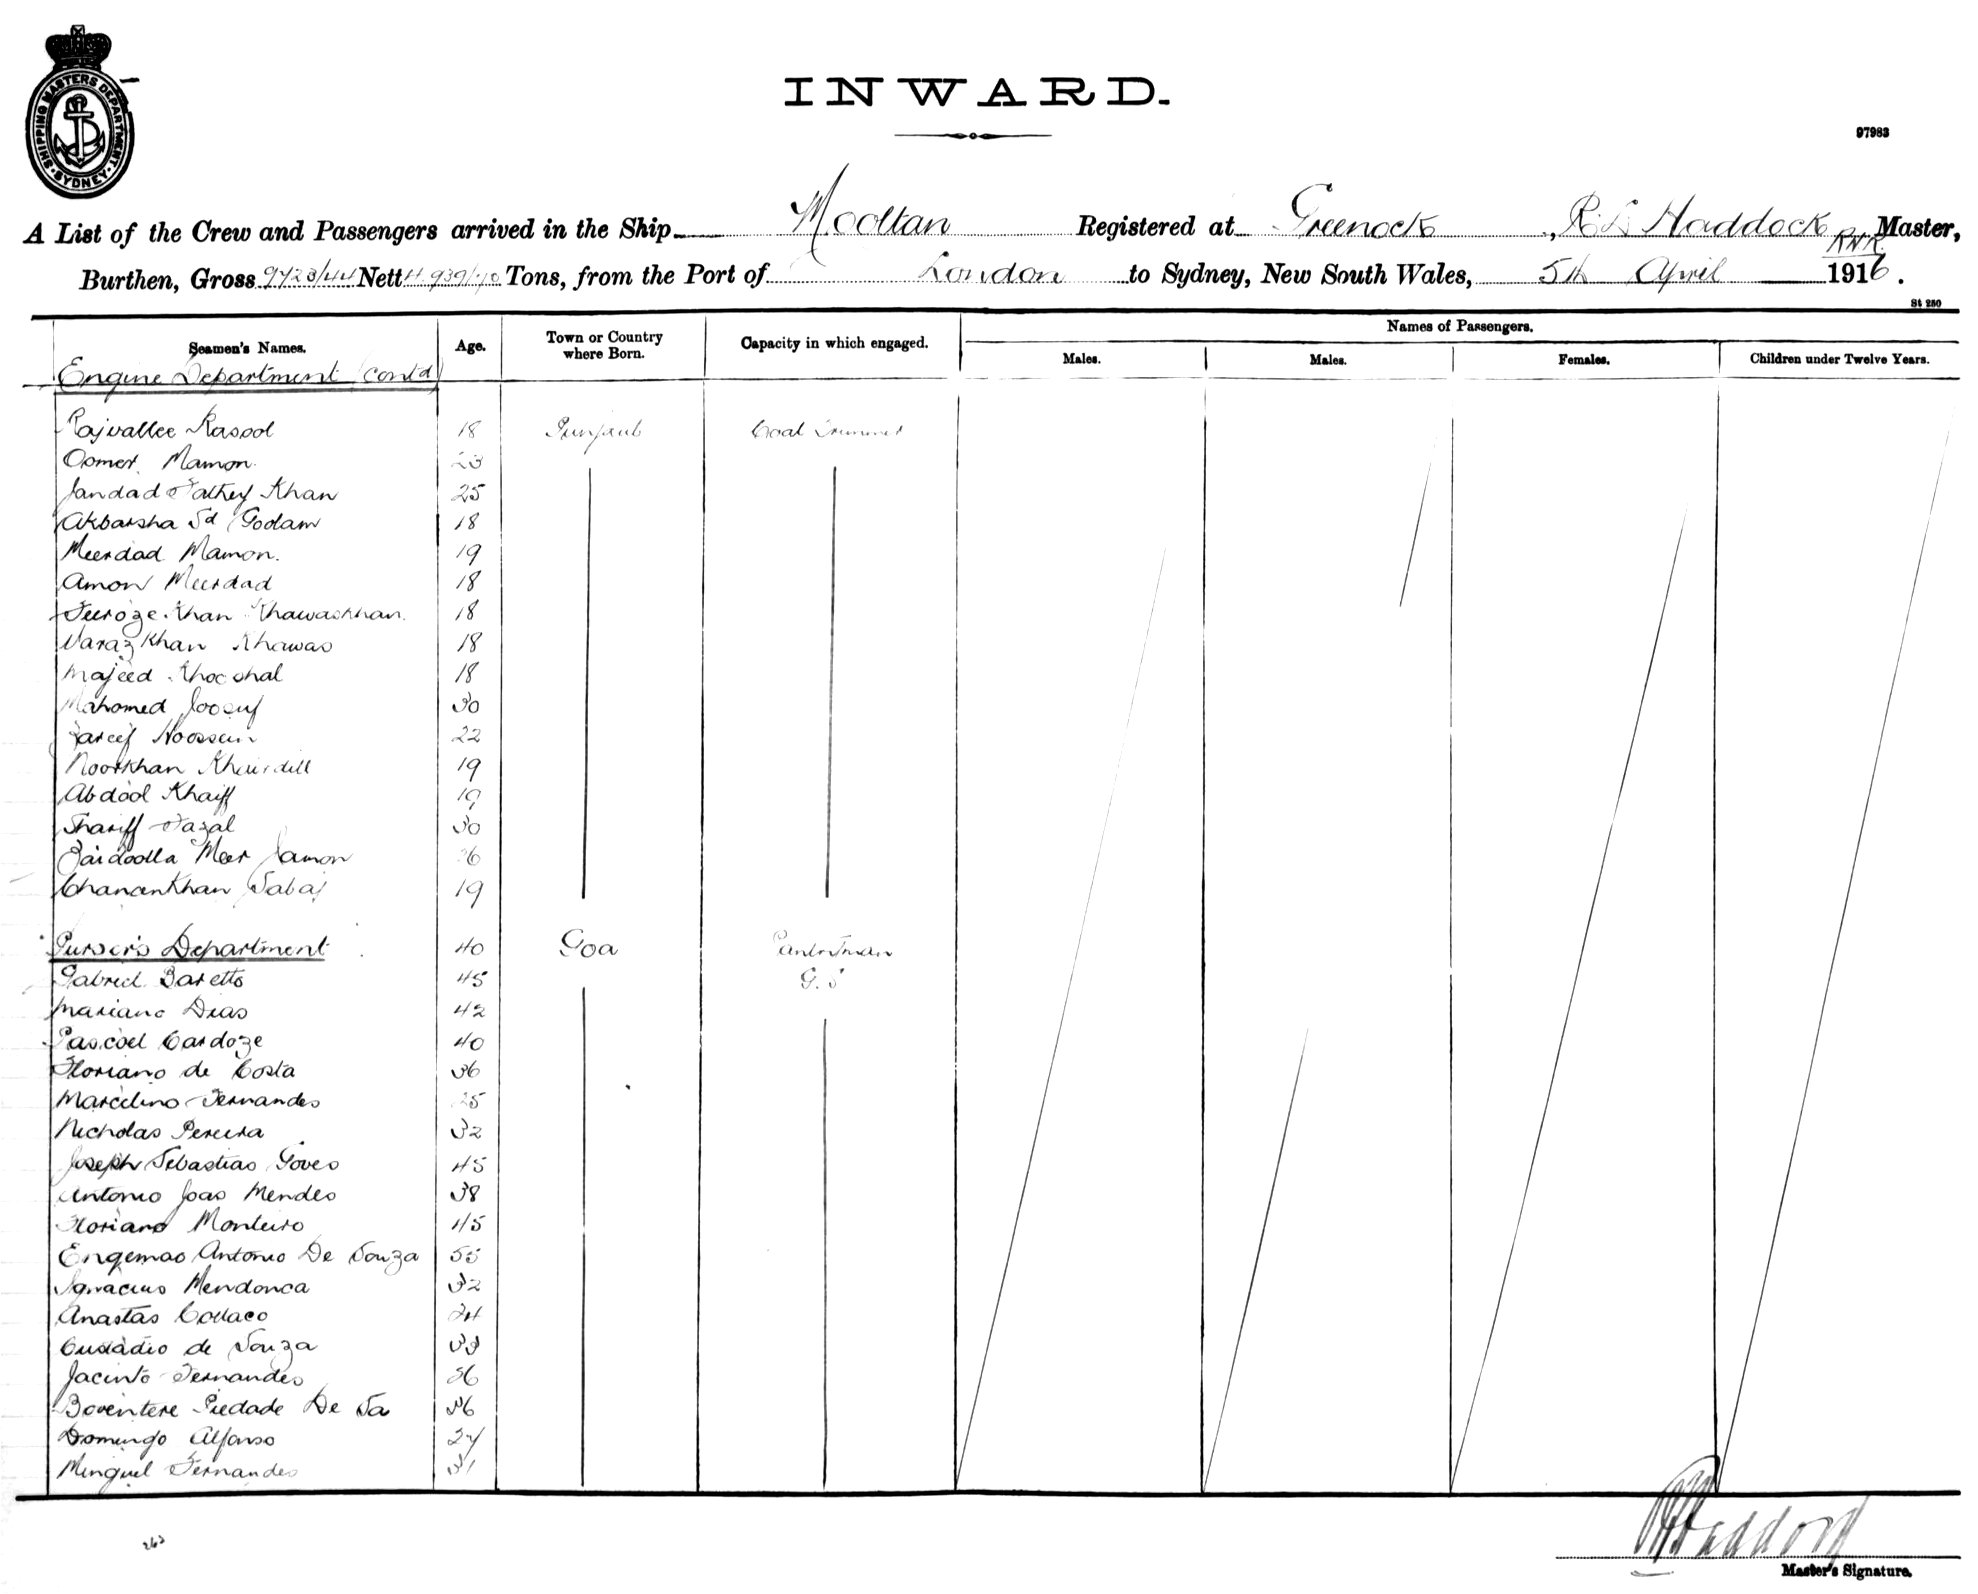 SHIPPING MASTERS DEPARTMENT · SYDNEY ·
INWARD.
97983
A List of the Crew and Passengers arrived in the Ship Mooltan Registered at Greenock, R L Haddock Master,
R.N.R.
Burthen, Gross 9723/44 Nett 4939/40 Tons, from the Port of London to Sydney, New South Wales, 5th April 1916.
St 250
Seamen's Names. Age. Town or Country where Born. Capacity in which engaged. Names of Passengers.
Males. Males. Females. Children under Twelve Years.
Engine Department (contd)
Rajvallee Rasool 18 Punjaub Coal Trimmer
Oomer Mamon. 23
Jandad Fathey Khan 25
Akbarsha Sd Godam 18
Meerdad Mamon. 19
Amon Meerdad 18
Feeroze Khan Khawaskhan. 18
Naraz Khan Khawas 18
Majeed Khooshal 18
Mahomed Joosuf 30
Zareef Hoossein 22
Noorkhan Kheirdill 19
Abdool Khaiff 19
Shariff Fazal 30
Zaidoolla Meer Jamon 36
Chanankhan Sabaj 19
Purser's Department 40 Goa Pantryman
Gabriel Baretto 45 G.S
Mariano Dias 42
Pascoel Cardoze 40
Floriano de Costa 36
Marcelino Fernandes 25
Nicholas Pereira 32
Joseph Sebastiao Goves 45
Antonio Joao Mendes 38
Floriano Monteiro 45
Engemao Antonio De Souza 55
Ignacius Mendonca 32
Anastas Collaco 24
Custadio de Souza 33
Jacinto Fernandes 36
Boventere Piedade De Sa 36
Domingo Alfonso 27
Minguel Fernandes 31
263
R L Haddock
Master's Signature.